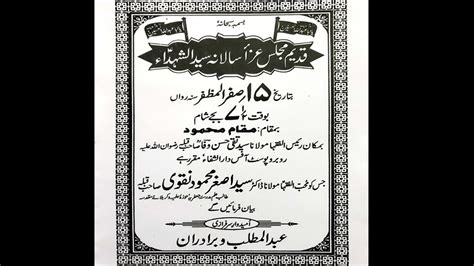 بسمہ سبحانہ
قدیم مجلس عزا سالانہ سید الشہداء
بتاریخ ۱۵ صفر المظفر سنہ رواں
بوقت ۷ بجے شام
بمقام: مقام محمود
بمکان رئیس الفقہا مولانا سید تقی حسن وفا صاحب قبلہ رضوان اللہ علیہ
روبرو پوسٹ آفس دار الشفاء مقرر ہے
جس کو مولانا ڈاکٹر سید اصغر محمود نقوی صاحب قبلہ
بیان فرمائیں گے
امیدوار سرفرازی
عبد المطلب و برادران